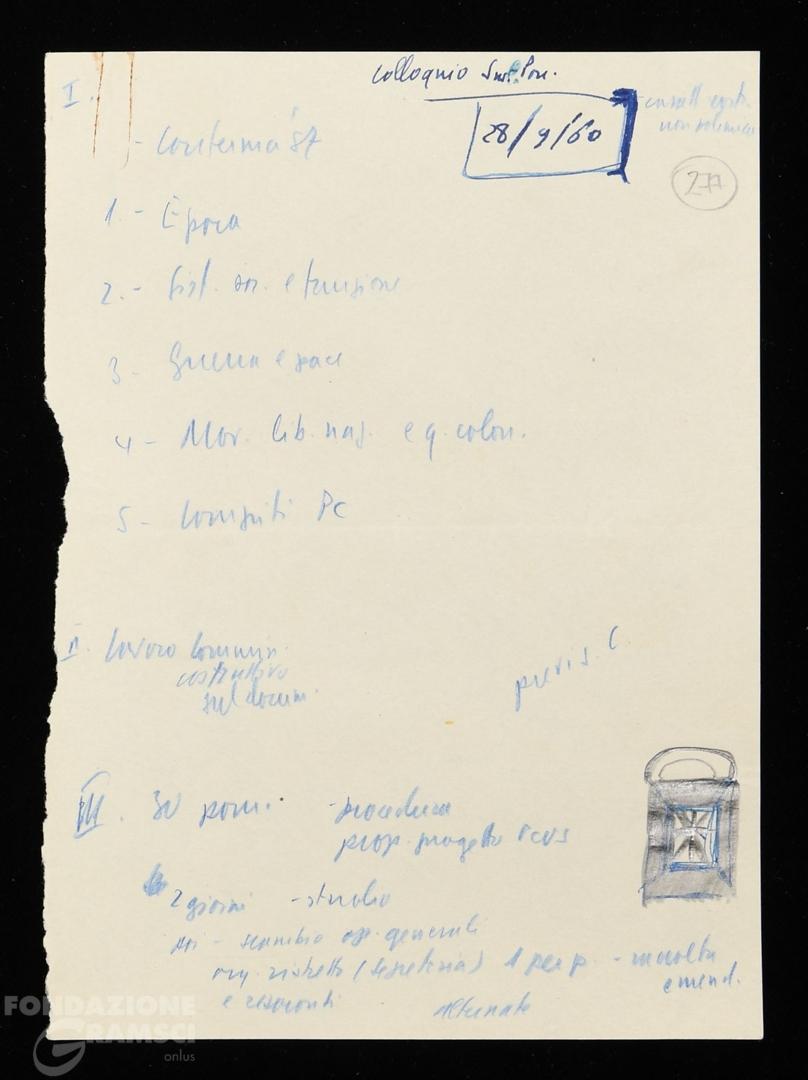 colloquio Sus. Pon.
28/9/60
non polemica
277
I.
- Conferma '57
1. - Epoca
2. - Sist. soc. e funzione
3 - Guerra e pace
4 - Mov. lib. naz. e q. colon.
5 - Compiti PC
II. lavoro commiss.
costruttivo
sul docum.
previs. C.
III. 30 pom. - procedura
prop. progetto PCUS
2 giorni - studio
poi - scambio opp. generali
org. ristretto (segreteria) 1 per p. - raccolta
emend.
e resoconti
alternate
FONDAZIONE
GRAMSCI
onlus